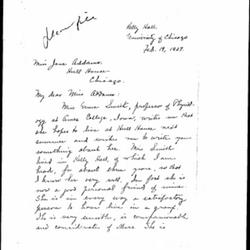 Kelly Hall.
University of Chicago
Feb. 19, 1927.
Miss Jane Addams.
Hull House
Chicago.
My dear Miss Addams:
Miss Smith, professor of
at Ames College, Iowa, writes me that
she hopes to live at Hull House next
summer and wishes me to write you
something about her. Miss Smith
lived in Kelly Hall, of which I am
head, for about three years, so that
I know her very well. In fact she is
now a good personal friend of mine.
She is in every way a satisfactory
person to have live in a group.
She is very sensible, is companionable
and considerate of others. She is